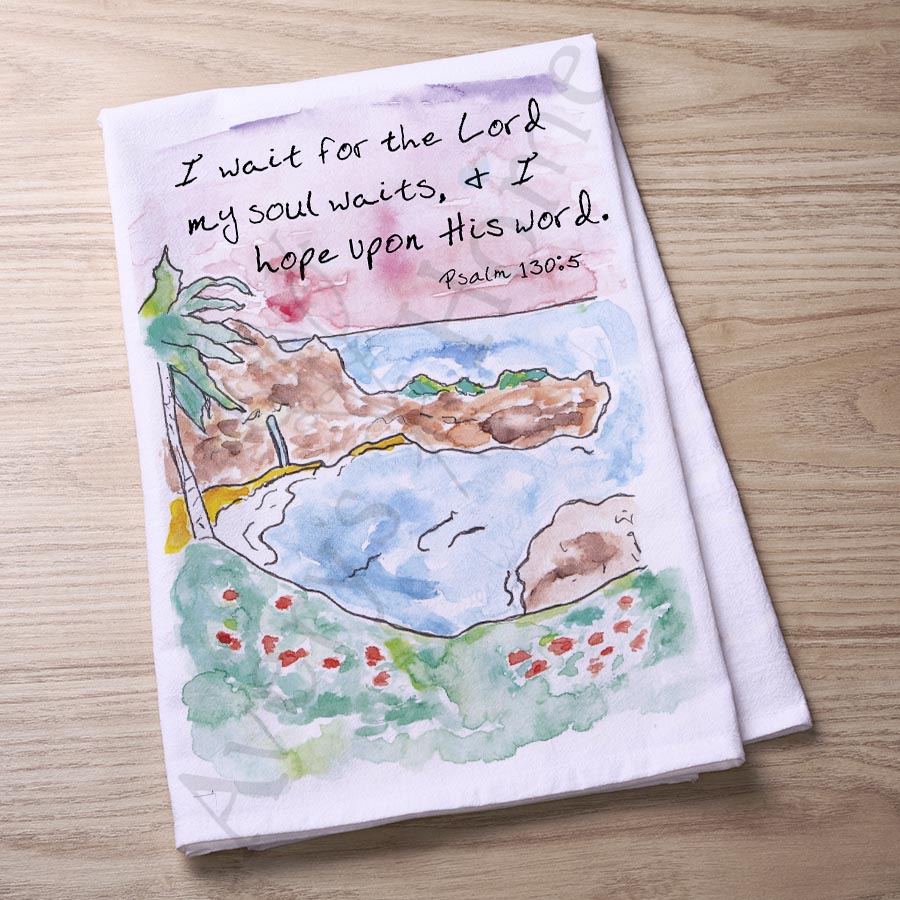 I wait for the Lord
my soul waits, & I
hope upon His word.
Psalm 130:5